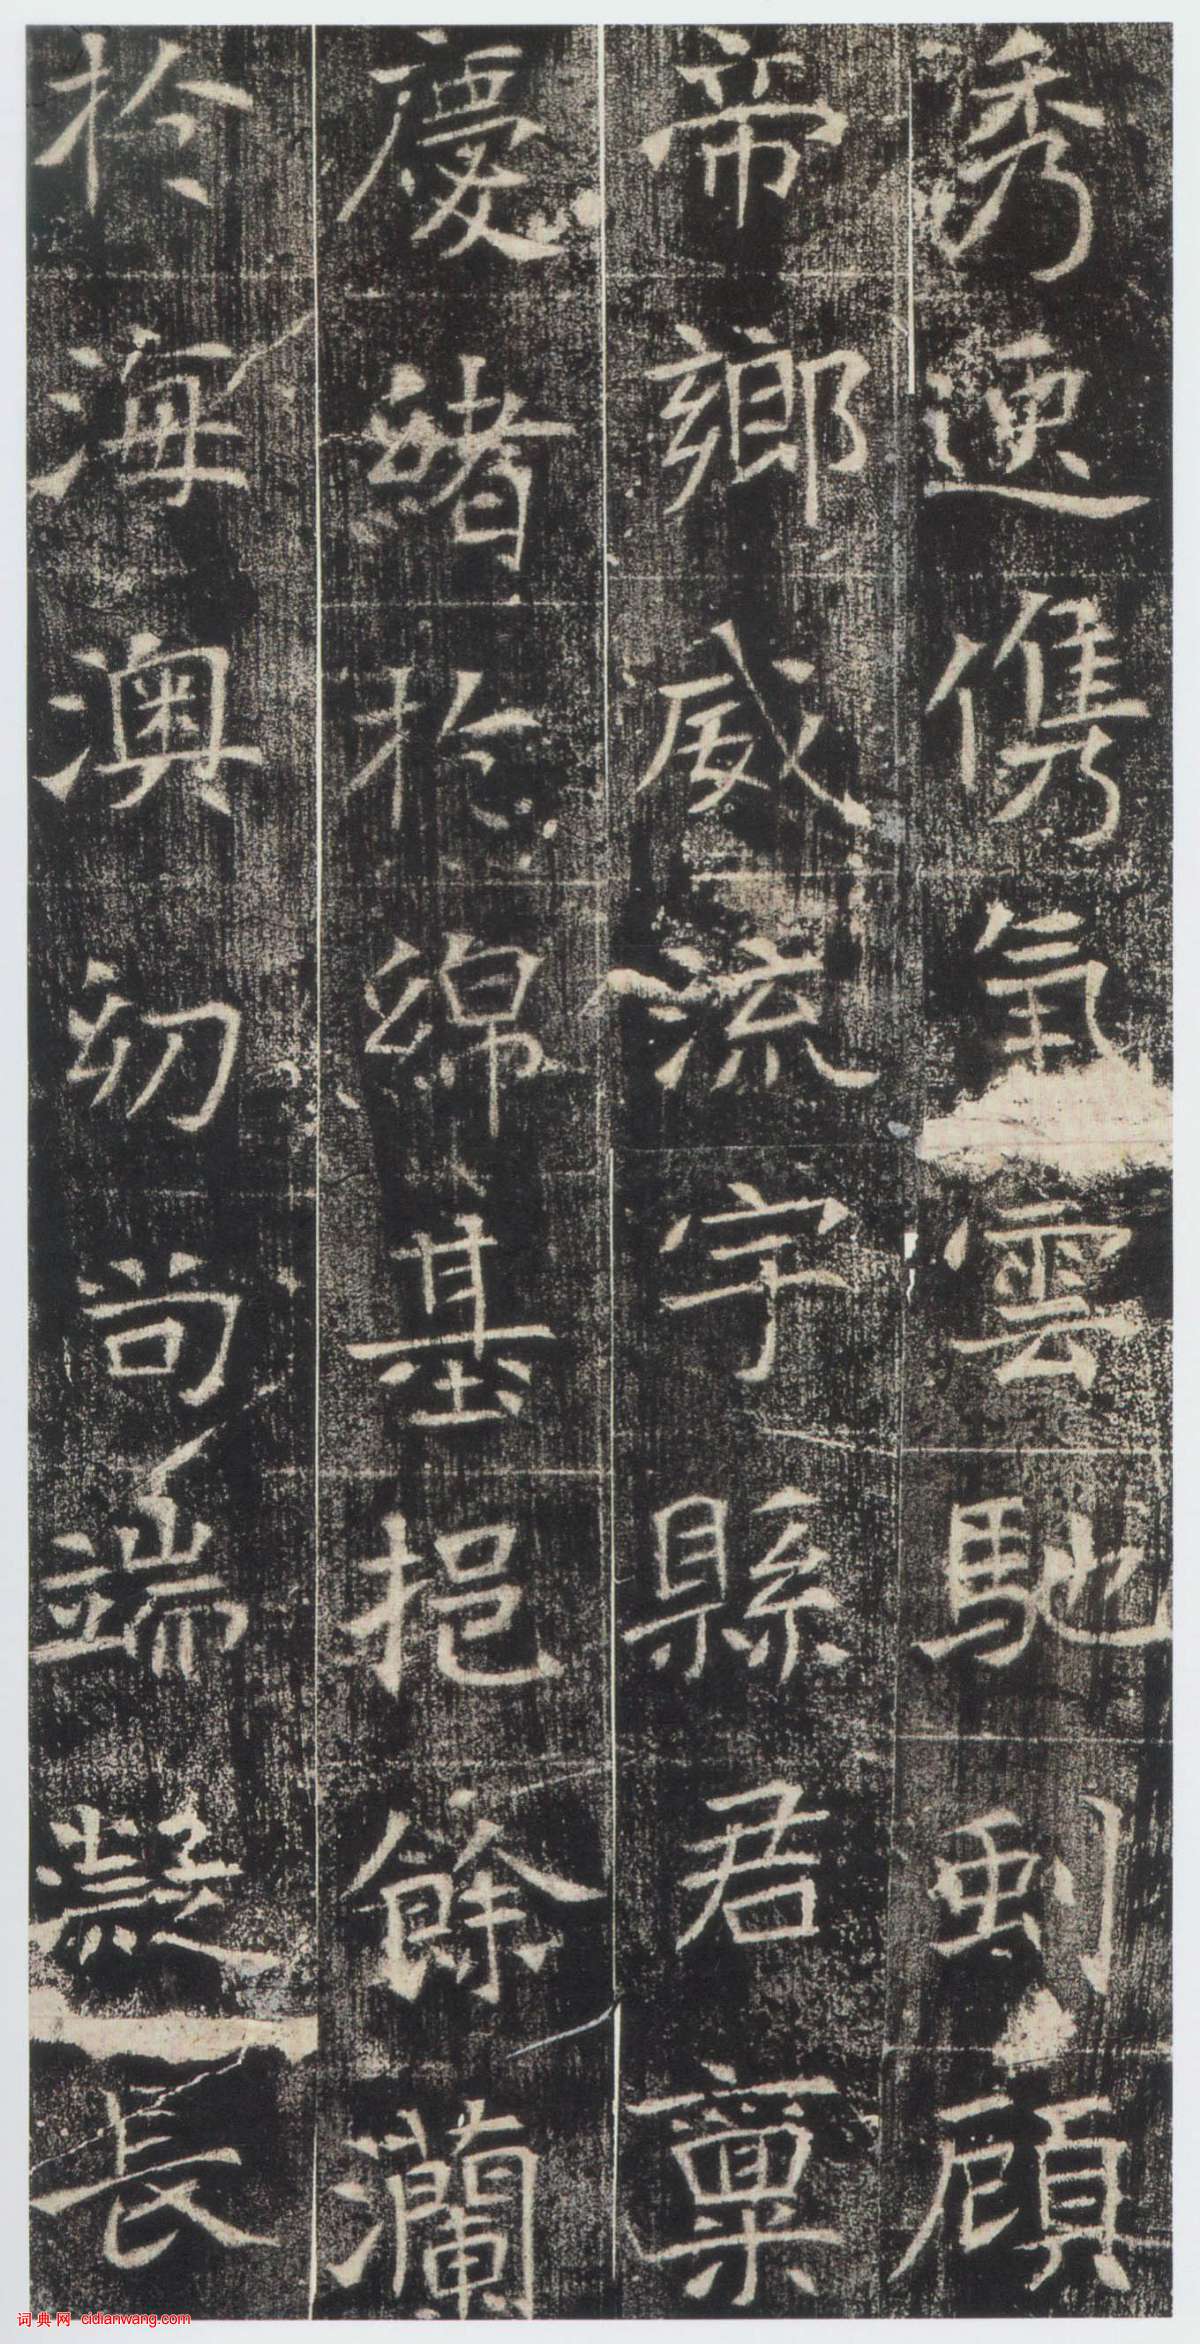 秀儁氣雲馳顧
帝鄉威流宇縣君稟
慶緒於綿基挹餘瀾
於海澳幼尚端凝長
词典网 cidianwang.com